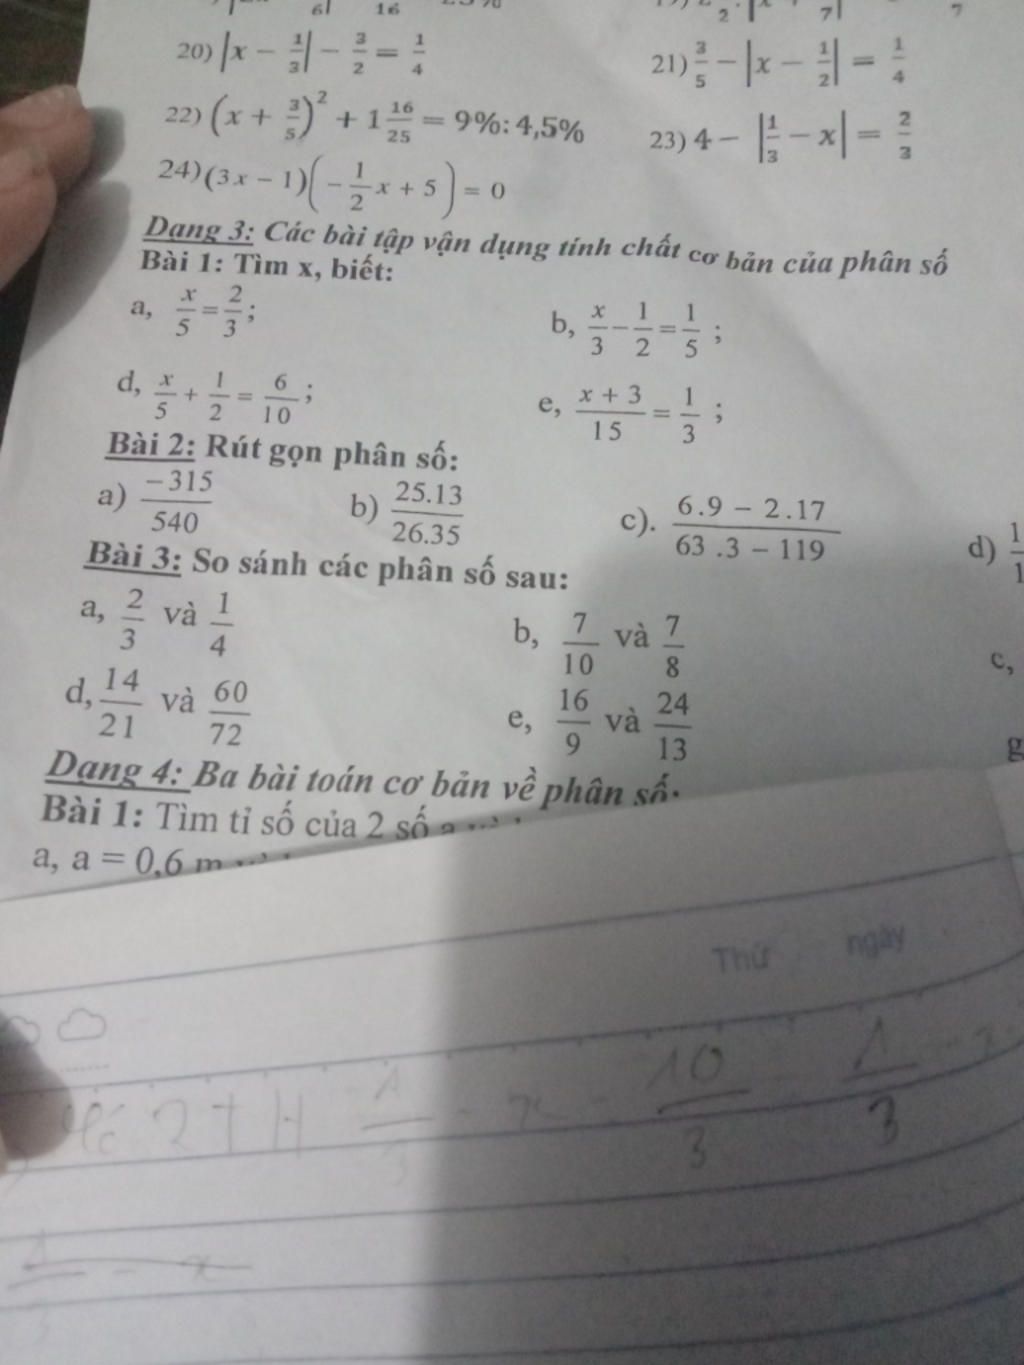 20) |x − 1/3| − 3/2 = 1/4
21) 3/5 − |x − 1/2| = 1/4
22) (x + 3/5)² + 1 16/25 = 9%: 4,5%
23) 4 − |1/3 − x| = 2/3
24) (3x − 1)(−1/2 x + 5) = 0
Dạng 3: Các bài tập vận dụng tính chất cơ bản của phân số
Bài 1: Tìm x, biết:
a, x/5 = 2/3 ;
b, x/3 − 1/2 = 1/5 ;
d, x/5 + 1/2 = 6/10 ;
e, (x + 3)/15 = 1/3 ;
Bài 2: Rút gọn phân số:
a) −315/540
b) 25.13/26.35
c). (6.9 − 2.17)/(63.3 − 119)
d)
Bài 3: So sánh các phân số sau:
a, 2/3 và 1/4
b, 7/10 và 7/8
c,
d, 14/21 và 60/72
e, 16/9 và 24/13
g
Dạng 4: Ba bài toán cơ bản về phân số.
Bài 1: Tìm tỉ số của 2 số
a, a = 0,6 m
Thứ ngày
1/3 − x = 10/3
1/3
1/3 − x